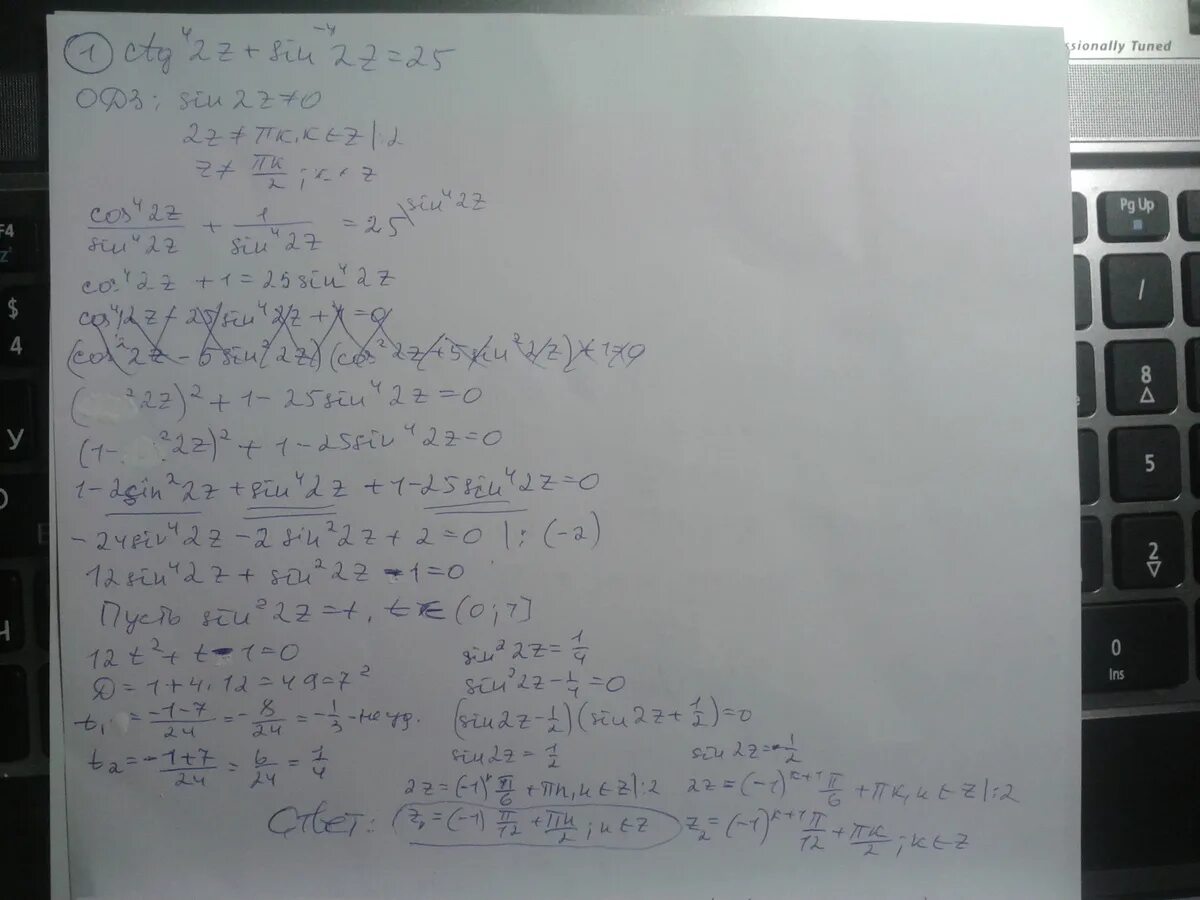 ① ctg⁴2z + sin⁻⁴2z = 25
ОДЗ: sin2z ≠ 0
2z ≠ πk, k ∈ Z |:2
z ≠ πk/2 ; z
cos⁴2z/sin⁴2z + 1/sin⁴2z = 25 \sin⁴2z
cos⁴2z + 1 = 25sin⁴2z
cos⁴2z - 25sin⁴2z + 1 = 0
(cos²2z - 5sin²2z)(cos²2z + 5sin²2z) + 1 = 0
( ²2z)² + 1 - 25sin⁴2z = 0
(1- ²2z)² + 1 - 25sin⁴2z = 0
1 - 2sin²2z + sin⁴2z + 1 - 25sin⁴2z = 0
-24sin⁴2z - 2sin²2z + 2 = 0 |: (-2)
12sin⁴2z + sin²2z - 1 = 0
Пусть sin²2z = t, t ∈ (0; 1]
12t² + t - 1 = 0
D = 1 + 4·12 = 49 = 7²
t₁ = -1-7/24 = -8/24 = -1/3 - не уд.
t₂ = -1+7/24 = 6/24 = 1/4
sin²2z = 1/4
sin²2z - 1/4 = 0
(sin2z - 1/2)(sin2z + 1/2) = 0
sin2z = 1/2 sin2z = -1/2
2z = (-1)ᵏ π/6 + πk, k ∈ Z |:2 2z = (-1)ᵏ⁺¹ π/6 + πk, k ∈ Z |:2
Ответ: z₁ = (-1) π/12 + πk/2 ; k ∈ Z z₂ = (-1)ᵏ⁺¹ π/12 + πk/2 ; k ∈ Z
ssionally Tuned
F4
Z
$
4
У
Pg Up
/
8
5
2
0
Ins